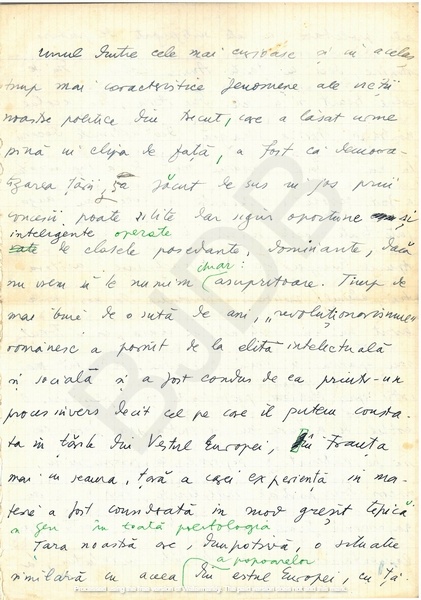 Unul dintre cele mai curioase și în același
timp mai caracteristice fenomene ale vieții
noastre politice din trecut, care a lăsat urme
pînă în clipa de față, a fost că democra-
tizarea țării, s'a făcut de sus în jos prin
concesii, poate silite dar sigur oportune și
inteligente operate
de clasele posedante, dominante, dacă
chiar:
nu vrem să le numim asupritoare. Timp de
mai bine de o sută de ani, „revoluționarismul"
românesc a pornit de la elita intelectuală
și socială și a fost condus de ea printr-un
proces invers decît cel pe care îl putem consta-
ta în țările din Vestul Europei, în Franța
mai cu seamă, țară a cărei experiență în ma-
terie a fost considerată în mod greșit tipică
în toată politologia
Țara noastră are, dimpotrivă, o situație
a popoarelor
similară cu aceea din estul Europei, cu ța-
BJDB